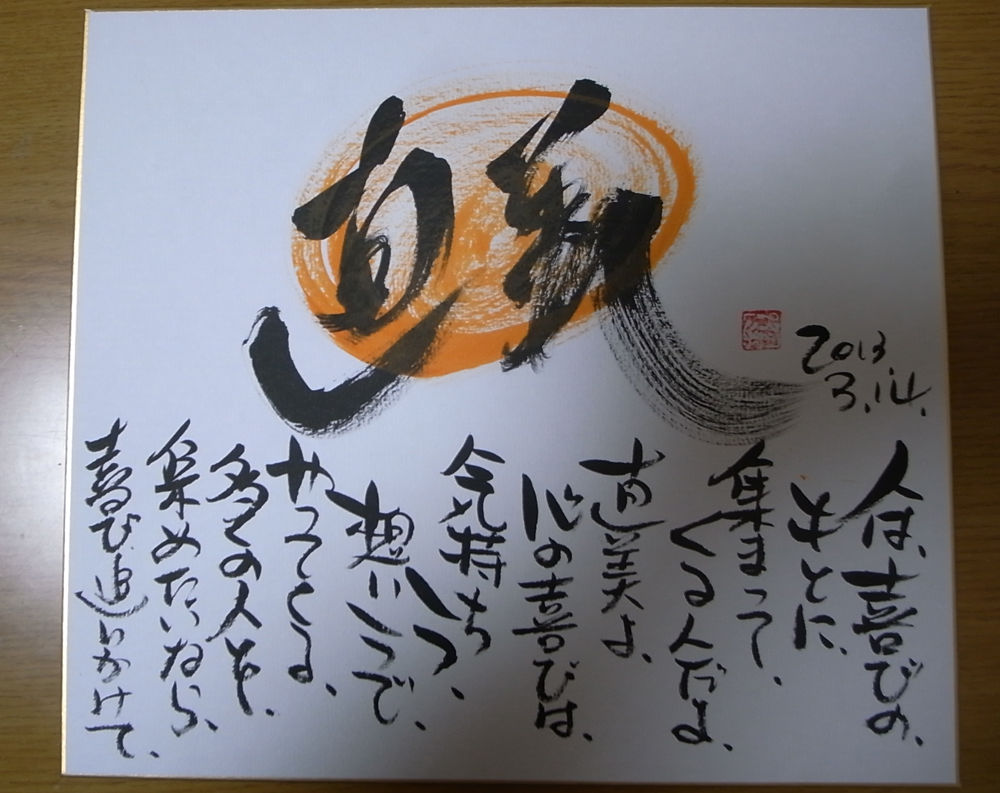 直美
2013
3.14.
人は、喜びの、
もとに、
集まって、
くる人だよ、
直美よ、
心の喜びは、
気持ち
一つ、
想い一つで、
やってくる、
多くの人を、
集めたいなら、
喜び追いかけて、